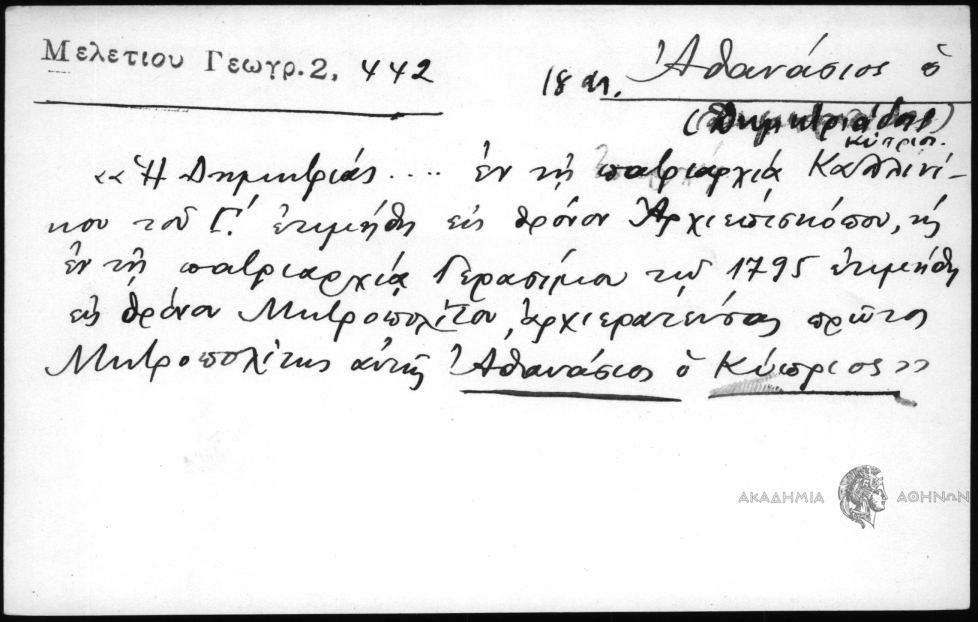 Μελετίου Γεωγρ. 2, 442
18 αι. Ἀθανάσιος ὁ
(Δημητριάδης)
Κύπριος.
«Ἡ Δημητριάς .... ἐν τῇ πατριαρχίᾳ Καλλινί-
κου τοῦ Γ΄. ἐτιμήθη εἰς θρόνον Ἀρχιεπισκόπου, κ
ἐν τῇ πατριαρχίᾳ Γερασίμου τῷ 1795 ἐτιμήθη
εἰς θρόνον Μητροπολίτου, ἀρχιερατεύσας πρῶτος
Μητροπολίτης αὐτῆς Ἀθανάσιος ὁ Κύπριος»
ΑΚΑΔΗΜΙΑ ΑΘΗΝΩΝ